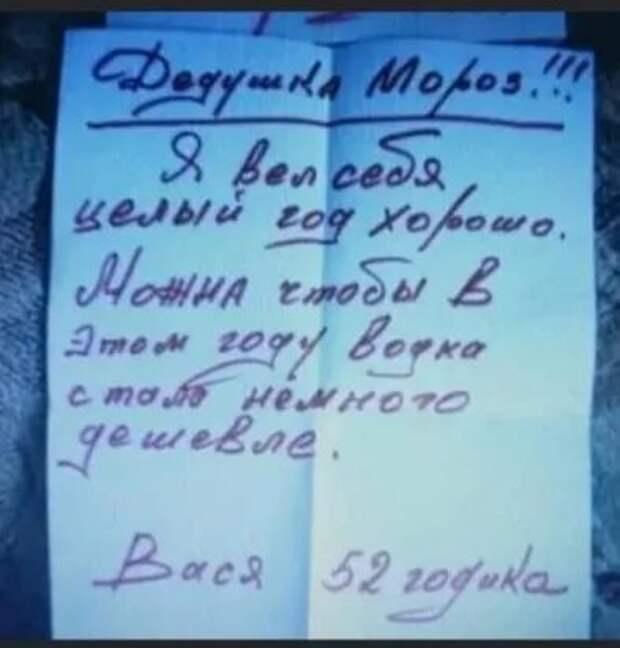 Дедушка Мороз!!!
Я вел себя
целый год хорошо.
Можна чтобы в
этом году водка
стала немного
дешевле.
Вася 52 годика